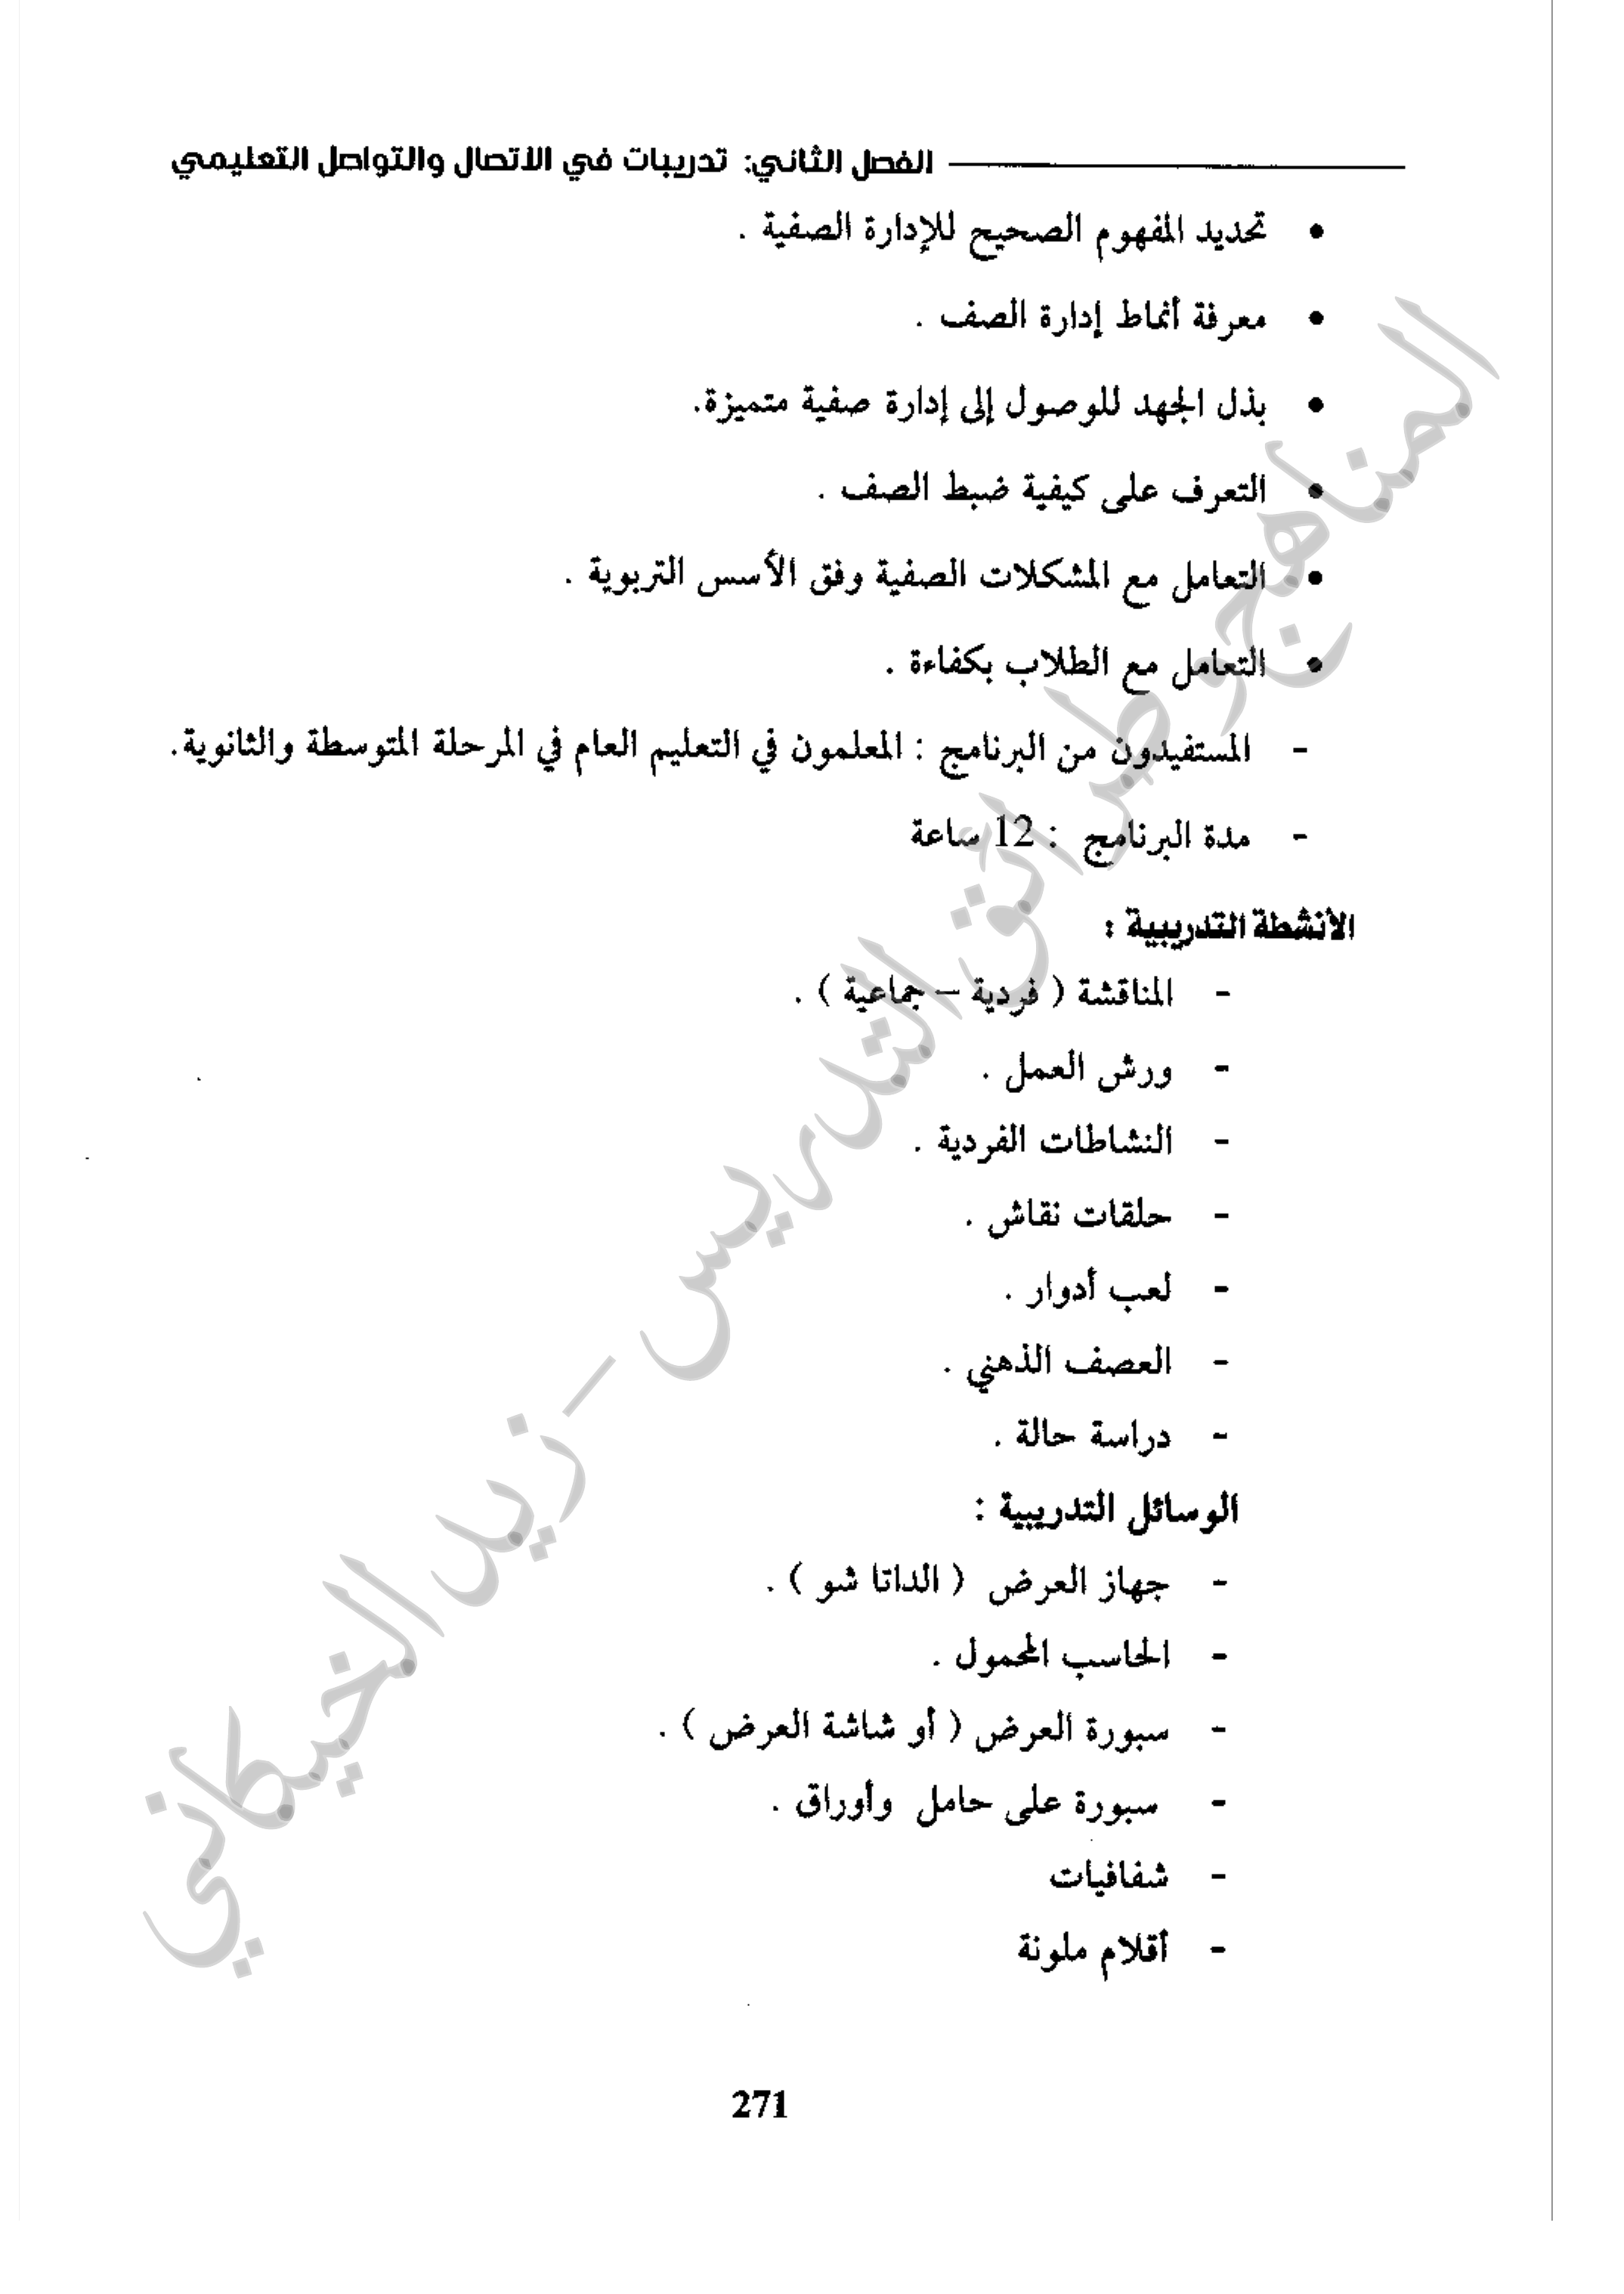 الفصل الثاني: تدريبات في الاتصال والتواصل التعليمي
• تحديد المفهوم الصحيح للإدارة الصفية .
• معرفة أنماط إدارة الصف .
• بذل الجهد للوصول إلى إدارة صفية متميزة.
• التعرف على كيفية ضبط الصف .
• التعامل مع المشكلات الصفية وفق الأسس التربوية .
• التعامل مع الطلاب بكفاءة .
- المستفيدون من البرنامج : المعلمون في التعليم العام في المرحلة المتوسطة والثانوية.
- مدة البرنامج : 12 ساعة
الأنشطة التدريبية :
- المناقشة ( فردية – جماعية ) .
- ورش العمل .
- النشاطات الفردية .
- حلقات نقاش .
- لعب أدوار .
- العصف الذهني .
- دراسة حالة .
الوسائل التدريبية :
- جهاز العرض ( الداتا شو ) .
- الحاسب المحمول .
- سبورة العرض ( أو شاشة العرض ) .
- سبورة على حامل وأوراق .
- شفافيات
- أقلام ملونة
271
المناهج وطرائق التدريس - زيد الخيكاني